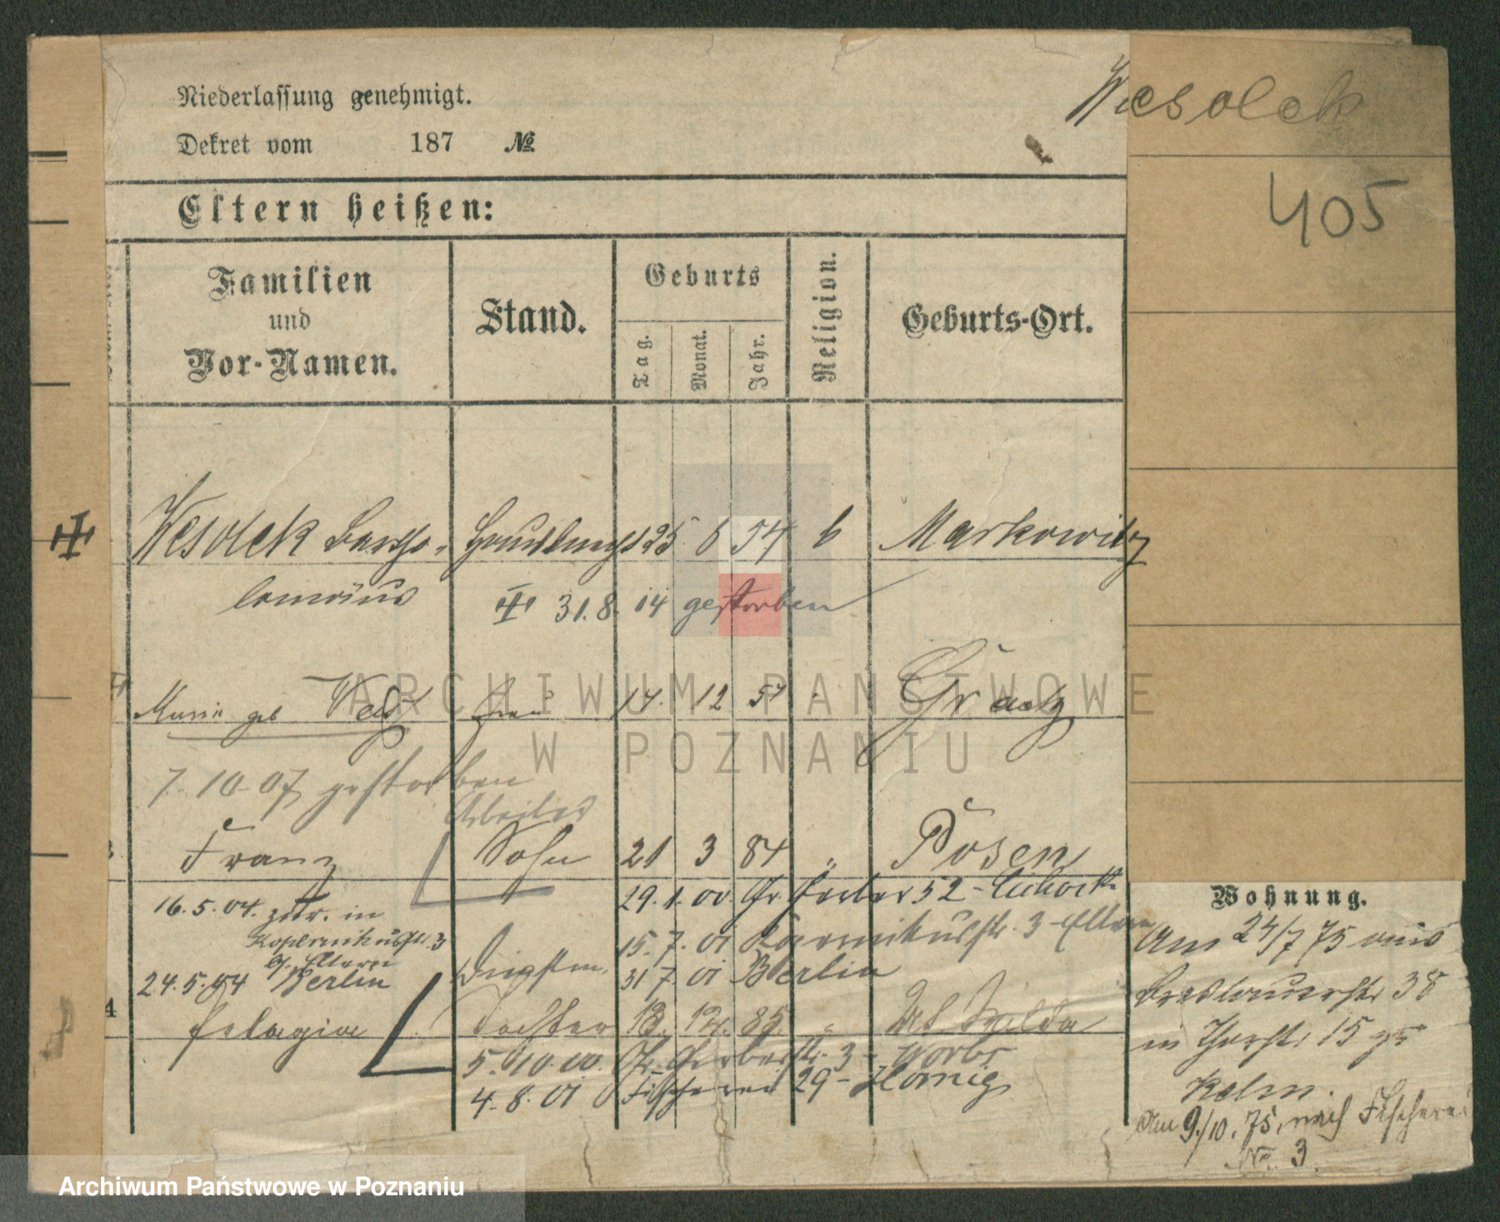 Wesolek
405
Niederlassung genehmigt.
Dekret vom 187 №
Eltern heißen:
Familien
und
Vor-Namen.
Stand.
Geburts
Tag.
Monat.
Jahr.
Religion.
Geburts-Ort.
Wesolek Bartho- 25 6 54 b Markowitz
lomäus
31.8.14 gestorben
Marie geb 14. 12 57 Graetz
7.10.07 gestorben
Arbeiter
Franz Sohn 21 3 84 " Posen
29.1.00. Gr Gerber 52 -
16.5.04. zur. in
3
b/ Eltern
15.7.01 3 Eltern
24.5.04 Berlin
31 7.01 Berlin
4
Pelagia Tochter 13. 12. 85 "
5.10.00. Gr. Gerberstr. 3 -
4.8.01 Fischerei 29 - Hornig
Wohnung.
Am 24/7 75 aus
Breslauerstr 38
in Thorst. 15 zu
Kelm.
Am 9./10.75. nach Fischerei
No. 3.
ARCHIWUM PAŃSTWOWE
W POZNANIU
Archiwum Państwowe w Poznaniu